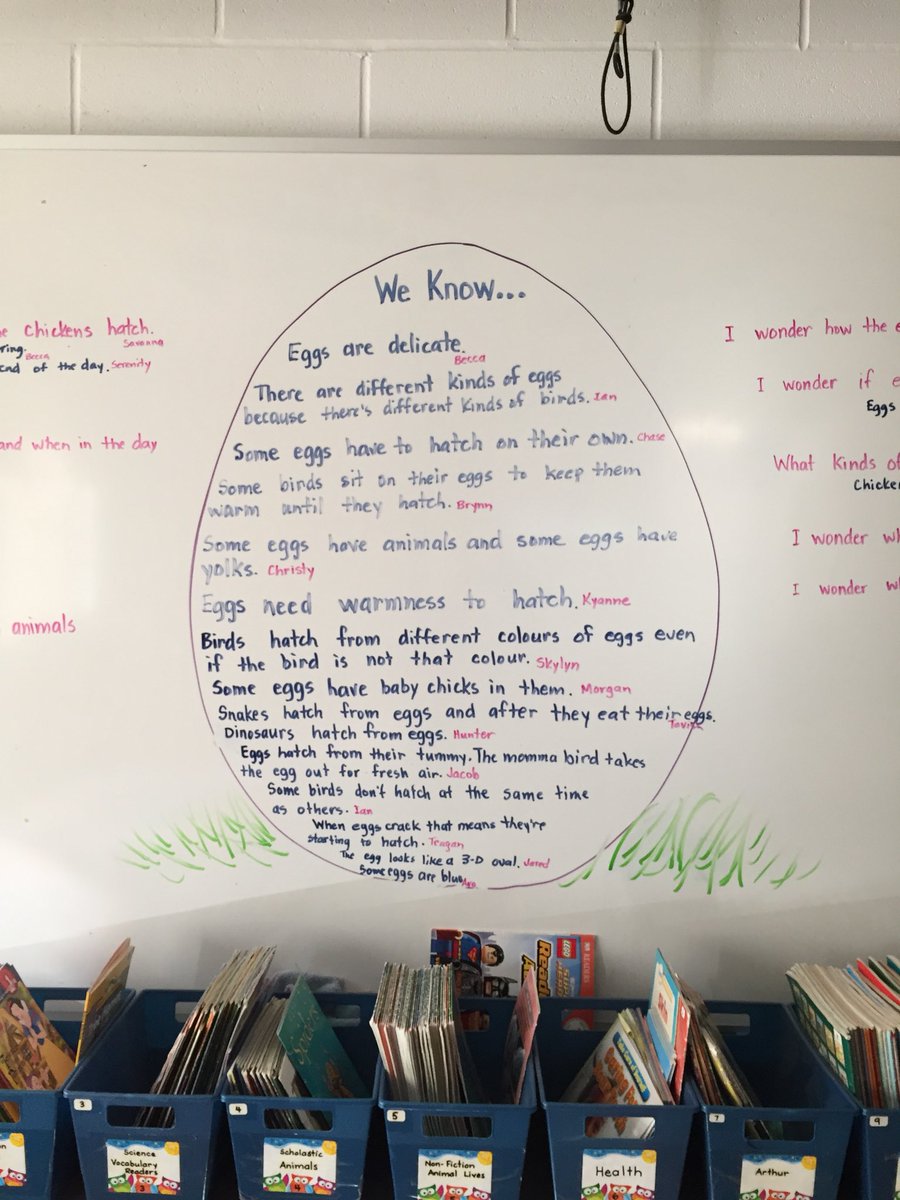 We Know...
Eggs are delicate.
Becca
There are different kinds of eggs
because there's different kinds of birds. Ian
Some eggs have to hatch on their own. Chase
Some birds sit on their eggs to keep them
warm until they hatch. Brynn
Some eggs have animals and some eggs have
yolks. Christy
Eggs need warmness to hatch. Kyanne
Birds hatch from different colours of eggs even
if the bird is not that colour. Skylyn
Some eggs have baby chicks in them. Morgan
Snakes hatch from eggs and after they eat their eggs.
Dinosaurs hatch from eggs. Hunter
Eggs hatch from their tummy. The momma bird takes
the egg out for fresh air. Jacob
Some birds don't hatch at the same time
as others. Ian
When eggs crack that means they're
starting to hatch. Teagan
The egg looks like a 3-D oval. Jared
Some eggs are blue
chickens hatch.
Savanna
Becca
end of the day. Serenity
and when in the day
animals
I wonder how the
I wonder if
Eggs
What kinds of
I wonder
I wonder
LEGO
3
Science
Vocabulary
Readers
3
4
Scholastic
Animals
4
5
Non-Fiction
Animal Lives
Health
7
Arthur
9